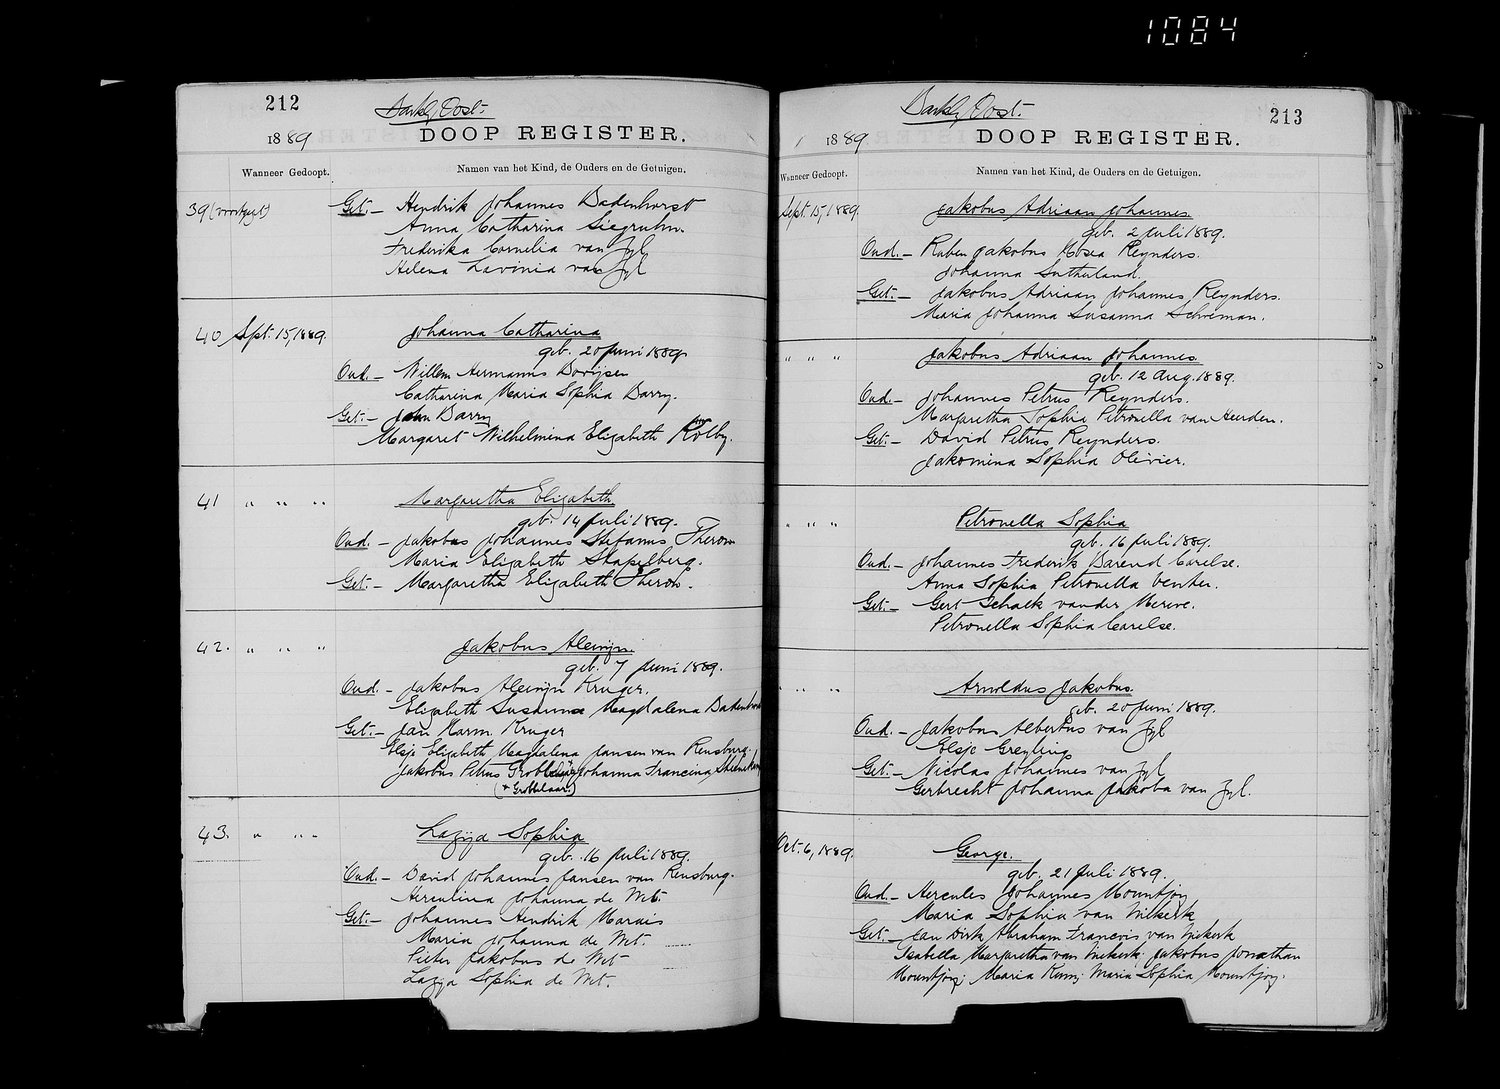 1084
212
Barkly Oost.
1889 DOOP REGISTER.
Wanneer Gedoopt. Namen van het Kind, de Ouders en de Getuigen.
39 (voortgezet) Get. – Hendrik Johannes Badenhorst
Anna Catharina Siegruhn.
Frederika Cornelia van Zyl
Helena Lavinia van Zyl
40 Sept. 15, 1889. Johanna Catharina
geb. 20 Juni 1889
Oud. – Willem Hermanus
Catharina Maria Sophia Barry.
Get. – John Barry
Margaret Wilhelmina Elizabeth Kolby.
41 " " " Margaretha Elizabeth
geb. 14 Juli 1889.
Oud. – Jakobus Johannes Stefanus Theron
Maria Elizabeth Stapelberg.
Get. – Margaretha Elizabeth Theron.
42. " " " Jakobus Alewijn
geb. 7 Juni 1889.
Oud. – Jakobus Alewijn Kruger.
Elizabeth Susanna Magdalena Badenhorst
Get. – Jan Harm. Kruger
Elsje Elizabeth Magdalena Jansen van Rensburg.
Jakobus Petrus Johanna Francina
(+ Grobbelaar)
43. " " " Lazya Sophia
geb. 16 Juli 1889.
Oud. – David Johannes Jansen van Rensburg.
Herculina Johanna de Wet.
Get. – Johannes Hendrik Marais
Maria Johanna de Wet.
Pieter Jakobus de Wet
Lazya Sophia de Wet.
213
Barkly Oost.
1889 DOOP REGISTER.
Wanneer Gedoopt. Namen van het Kind, de Ouders en de Getuigen.
Sept. 15, 1889. Jakobus Adriaan Johannes
geb. 2 Juli 1889.
Oud. – Ruben Jakobus Hosea Reynders.
Johanna Sutherland.
Get. – Jakobus Adriaan Johannes Reynders.
Maria Johanna Susanna Schoeman.
" " " Jakobus Adriaan Johannes
geb. 12 Aug. 1889.
Oud. – Johannes Petrus Reynders.
Margaretha Sophia Petronella van Heerden.
Get. – David Petrus Reynders.
Jakomina Sophia Olivier.
" " " Petronella Sophia
geb. 16 Juli 1889.
Oud. – Johannes Frederik Barend Carelse.
Anna Sophia Petronella Venter.
Get. – Gert Schalk van der Merwe.
Petronella Sophia Carelse.
" " " Arnoldus Jakobus
geb. 20 Juni 1889.
Oud. – Jakobus Albertus van Zyl
Elsje Greyling
Get. – Nicolas Johannes van Zyl
Gerbrecht Johanna Jakoba van Zyl.
Oct. 6, 1889. George.
geb. 21 Juli 1889.
Oud. – Hercules Johannes Mountjoy
Maria Sophia van Niekerk
Get. – Jan Dirk Abraham Francois van Niekerk
Isabella Margaretha van Niekerk; Jakobus Jonathan
Mountjoy; Maria Maria Sophia Mountjoy.